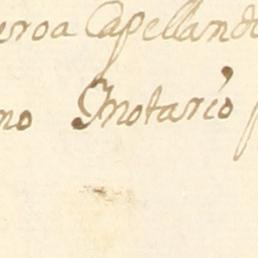 eroa Capellan
no Notario